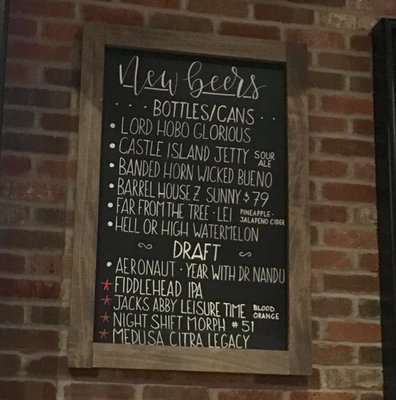 New beers
BOTTLES/CANS
• LORD HOBO GLORIOUS
• CASTLE ISLAND JETTY SOUR ALE
• BANDED HORN WICKED BUENO
• BARREL HOUSE Z SUNNY & 79
• FAR FROM THE TREE · LEI PINEAPPLE - JALAPENO CIDER
• HELL OR HIGH WATERMELON
~ DRAFT ~
• AERONAUT · YEAR WITH DR NANDU
★ FIDDLEHEAD IPA
★ JACKS ABBY LEISURE TIME BLOOD ORANGE
★ NIGHT SHIFT MORPH #51
★ MEDUSA CITRA LEGACY